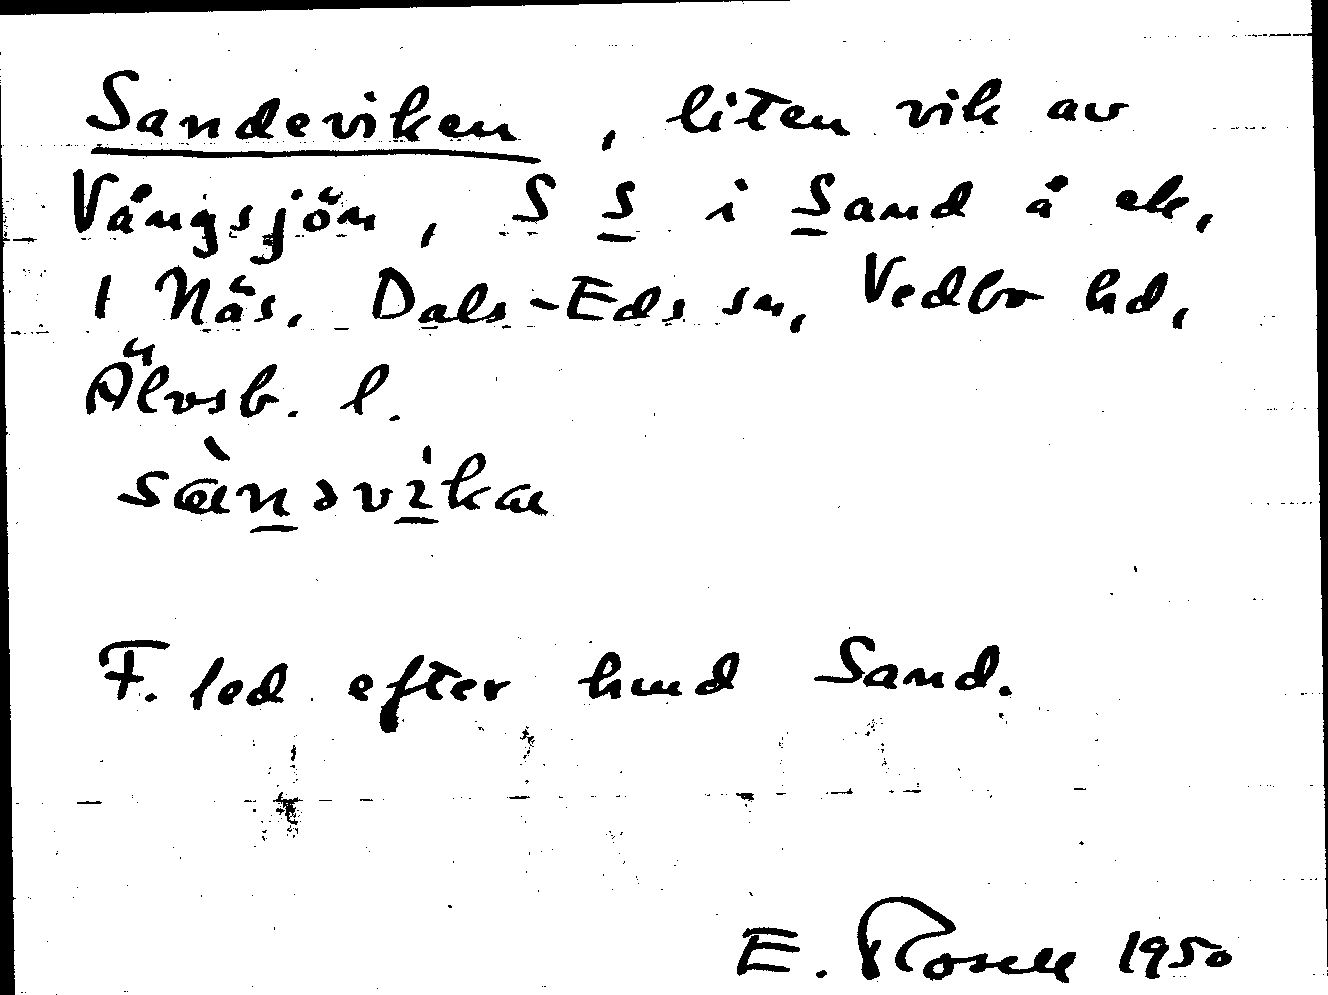 Sandeviken, liten vik av
Vångsjön, S S i Sand å ek,
1 Näs, Dals-Eds sn, Vedbo hd,
Älvsb. l.
sæ̀nəvika
F. led efter hmd Sand.
E. Rosell 1950